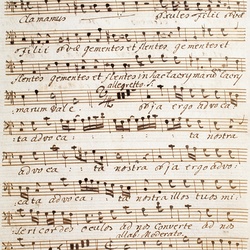 clamamus exules filii Evae
filii Evae gementes et flentes gementes et
flentes gementes et flentes in hac lacrymarum lacry
allegretto
marum Valle. Eja ergo advoca
ta advoca ta nostra
advoca ta nostra eja ergo advo
cata advoca ta nostra illos tuos mi
sericordes oculos ad nos Converte ad nos
Moderato